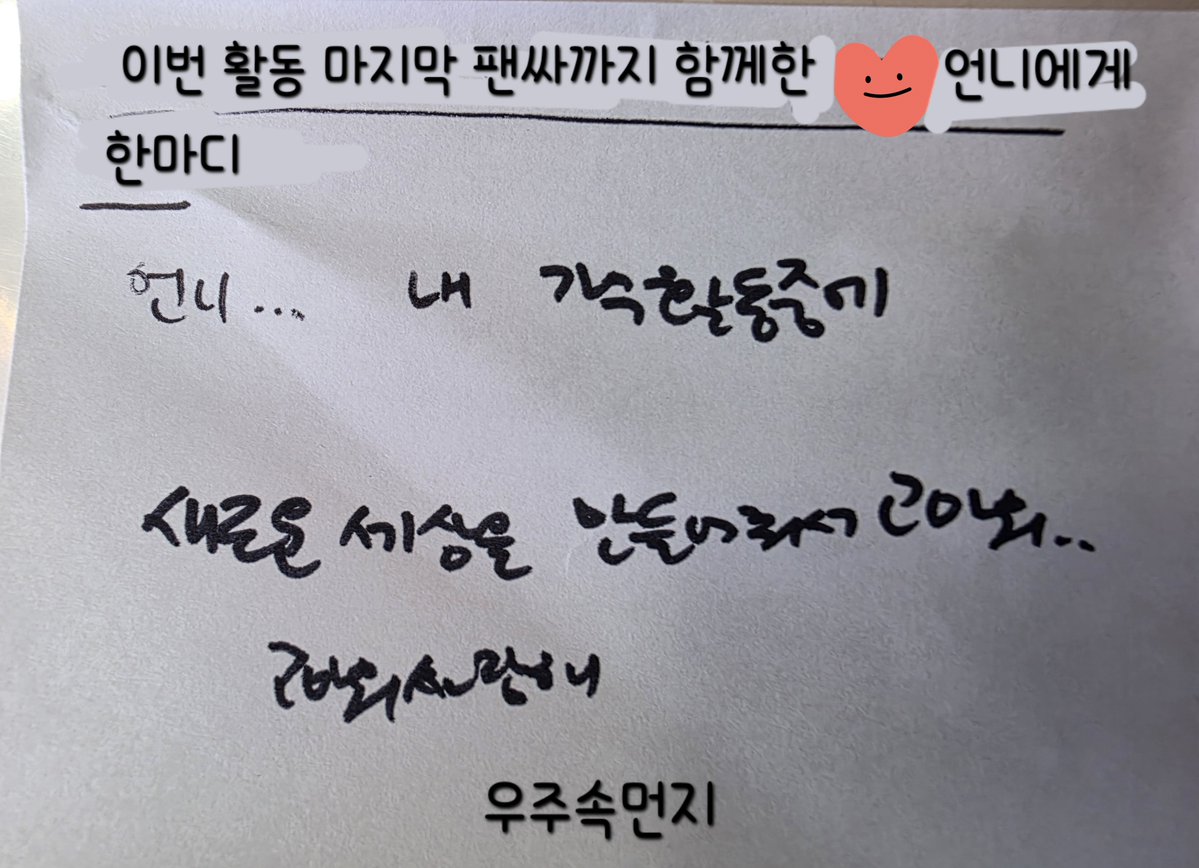 이번 활동 마지막 팬싸까지 함께한 언니에게
한마디
언니... 내 가수활동중에
새로운 세상을 만들어줘서 고마워..
고마워 사랑해
우주속먼지